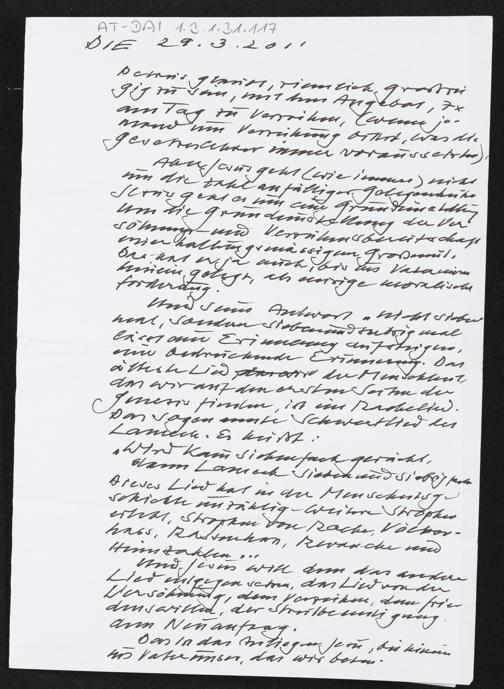 AT-DAI 1.3.1.31.117
DIE 29.3.2011
Petrus glaubt, ziemlich grosszü
gig zu sein, mit dem Angebot, 7x
am Tag zu verzeihen, (wenn je-
mand um Verzeihung bittet, was die
Gesetzeslehrer immer voraussetzten).
Aber Jesus geht (wie immer) nicht
um die Zahl anfälliger Gelegenheiten
Jesus geht es um eine Grundeinstellung
um die Grundeinstellung der Ver
söhnungs- und Verzeihungsbereitschaft
einer haltungsmässigen Grossmut.
Das hat er ja auch, bis ins Vaterunser
hinein gelegt, als einzige moralische
Forderung.
Und seine Antwort „nicht sieben
mal, sondern siebenundsiebzig mal
lässt eine Erinnerung aufsteigen,
eine bedrückende Erinnerung. Das
älteste Lied der Menschheit,
das wir auf den ersten Seiten der
Genesis finden, ist ein Rachelied.
Das sogenannte Schwertlied des
Lamech. Es heisst:
„Wird Kain siebenfach gerächt,
dann Lamech siebenundsiebzigfach
Dieses Lied hat in der Menschheitsge
schichte unzählig weitere Strophen
erlebt, Strophen von Rache, Völker-
hass, Rassenhass, Revanche und
Heimzahlen...
Und Jesus will dem das andere
Lied entgegensetzen, das Lied von der
Versöhnung, dem Verzeihen, dem Frie
denswillen, der Streitbeendigung
dem Neuanfang.
Das ist das Anliegen Jesu, bis hinein
ins Vaterunser, das wir beten.